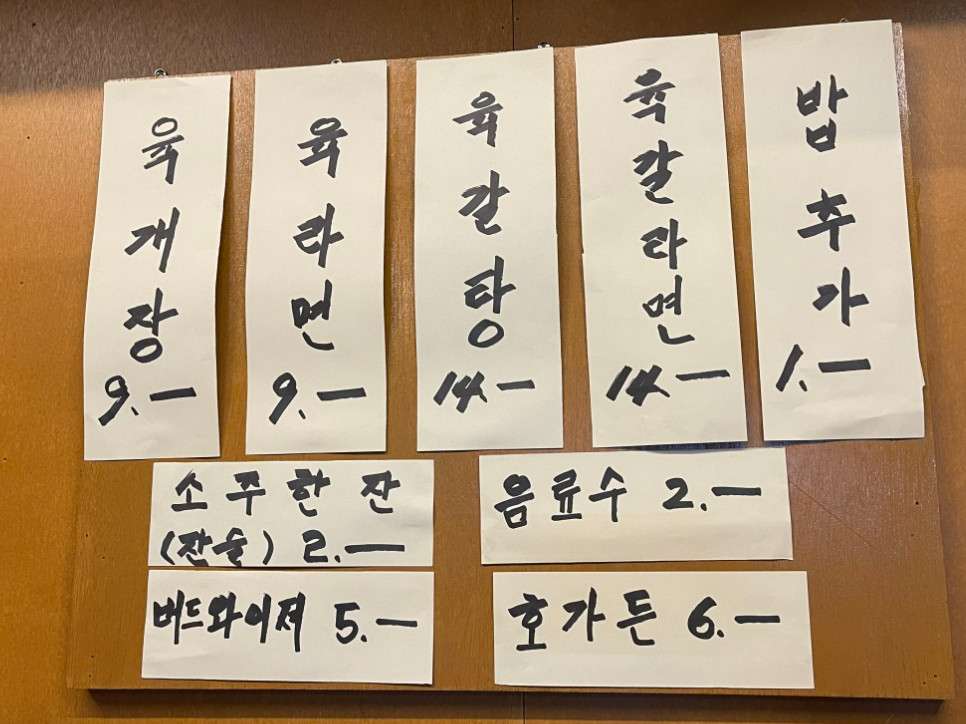 육개장
9.—
육라면
9.—
육갈탕
14.—
육갈라면
14.—
밥추가
1.—
소주한잔
(잔술) 2.—
음료수 2.—
버드와이져 5.—
호가든 6.—